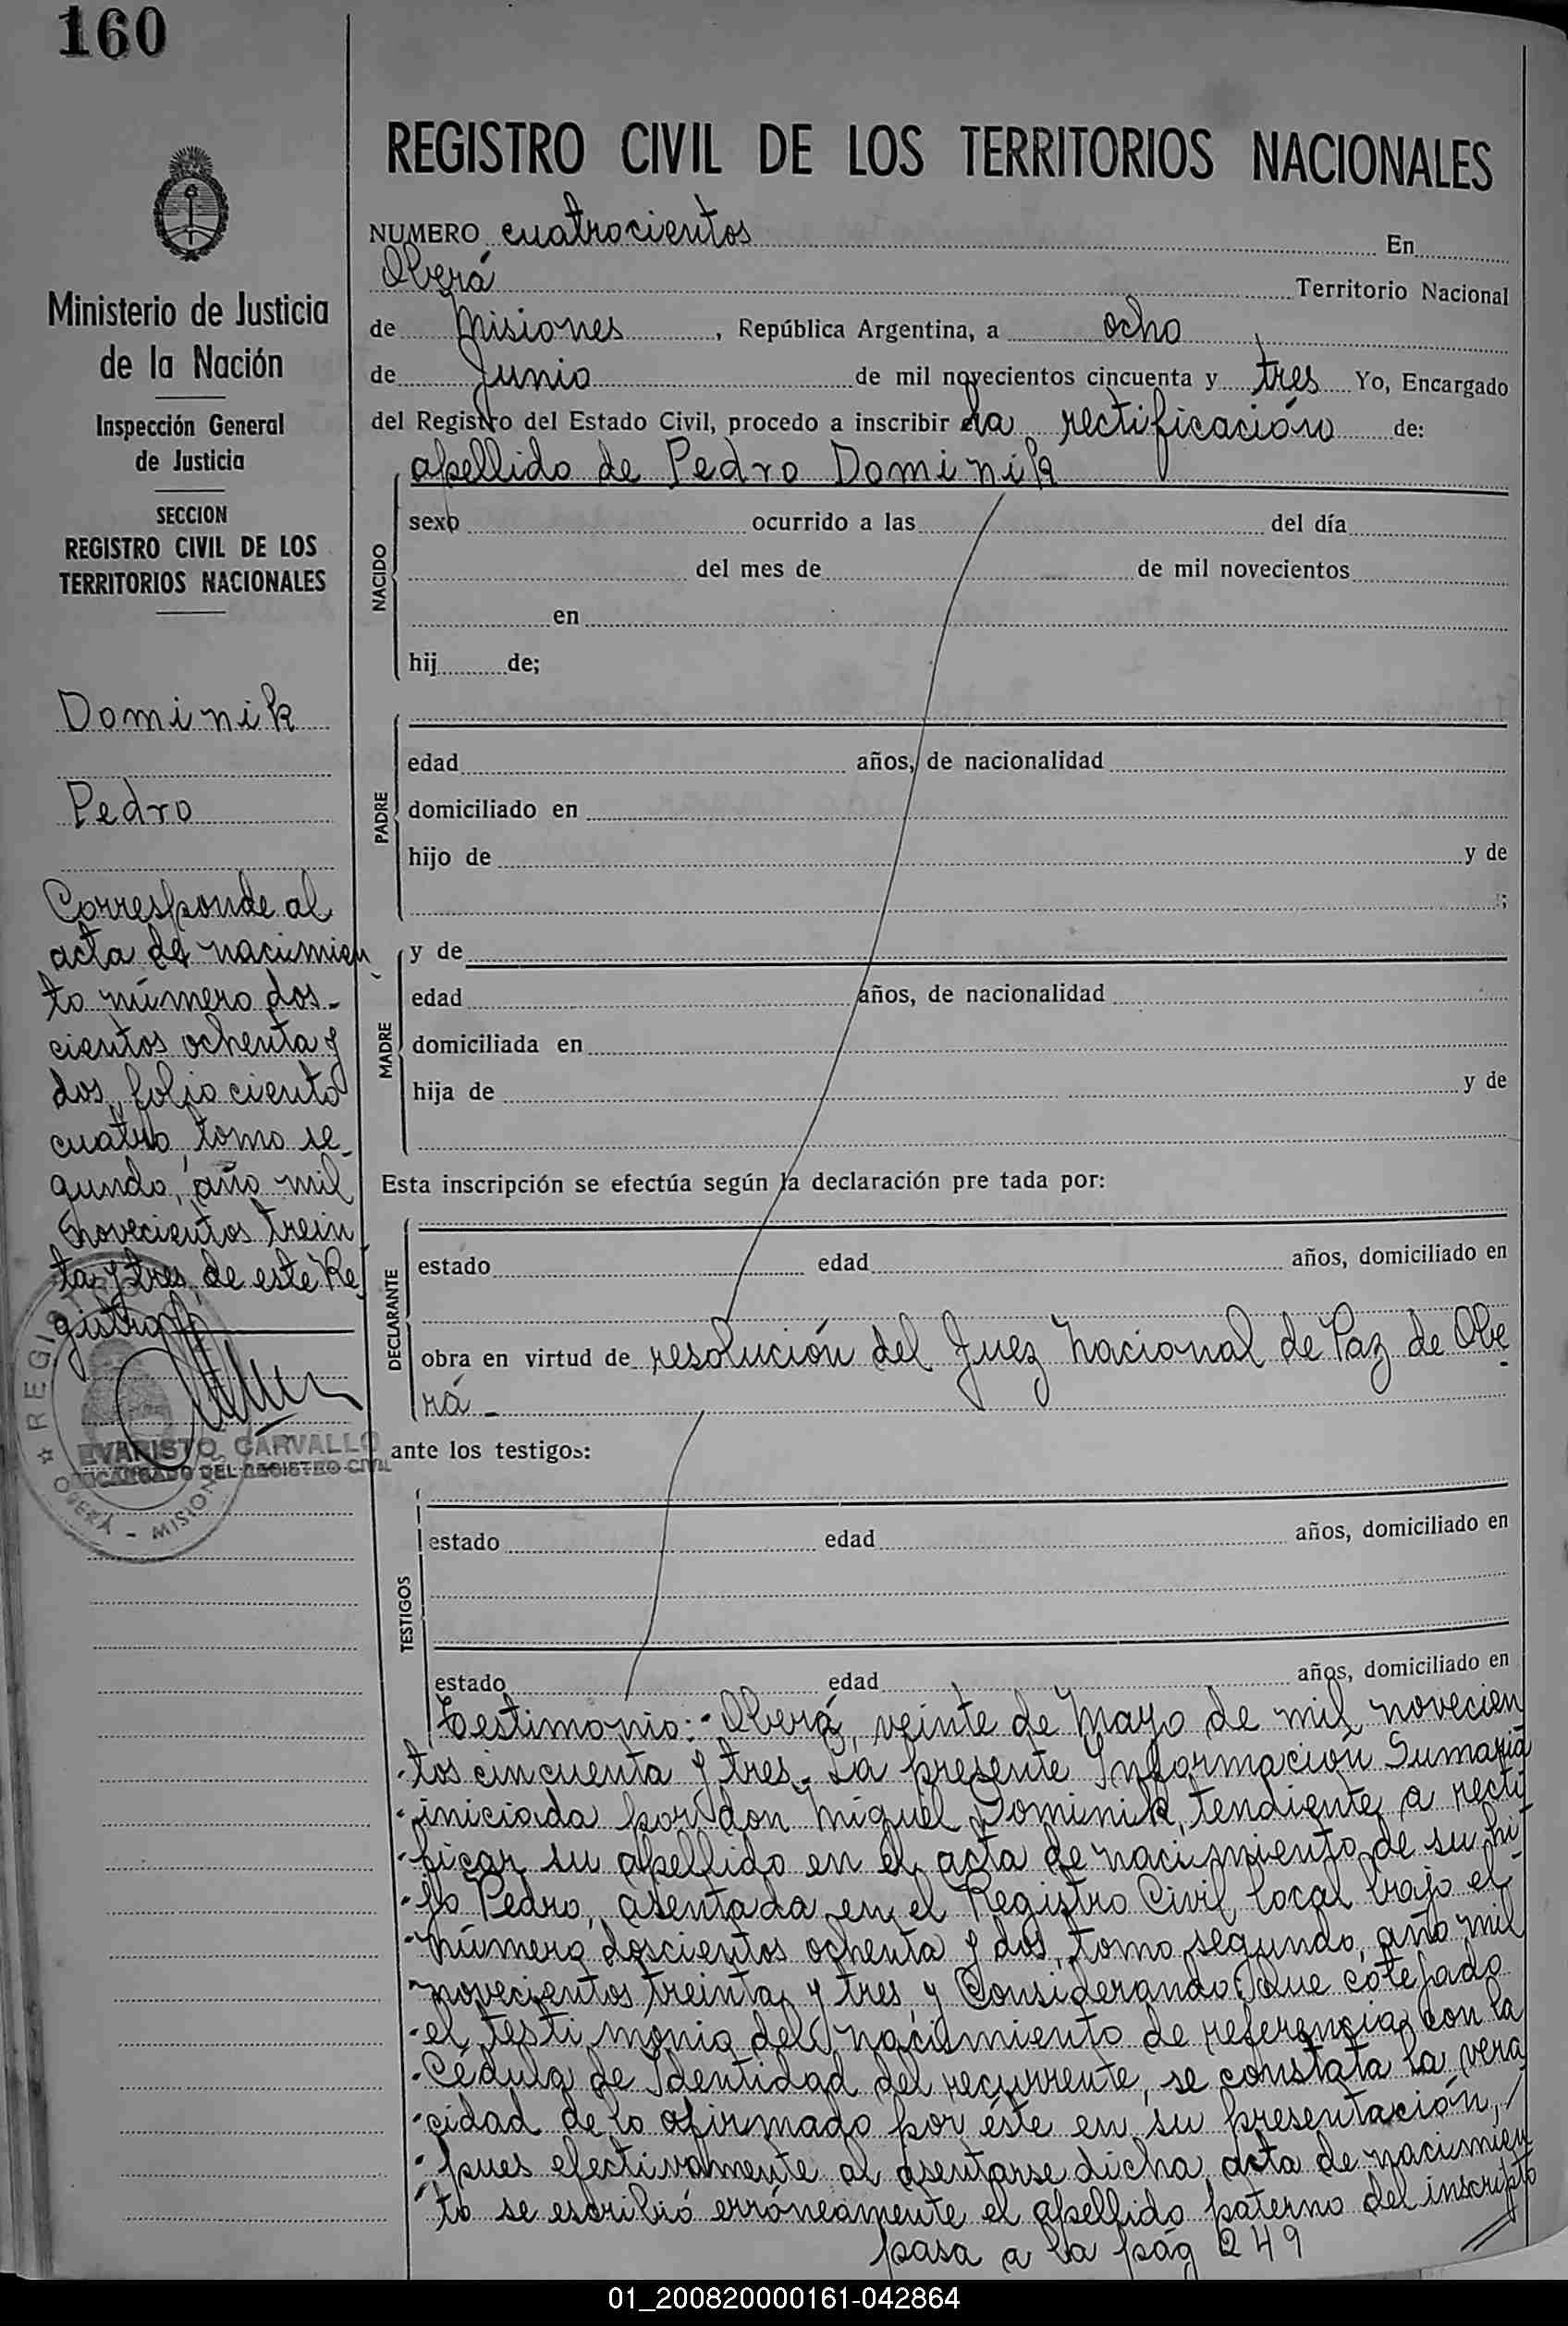 160
REGISTRO CIVIL DE LOS TERRITORIOS NACIONALES
Ministerio de Justicia
de la Nación
Inspección General
de Justicia
SECCION
REGISTRO CIVIL DE LOS
TERRITORIOS NACIONALES
Dominik
Pedro
Corresponde al
acta de nacimien
to número dos-
cientos ochenta y
dos, folio ciento
cuatro, tomo se
gundo, año mil
novecientos trein
ta y tres de este Re
gistro
REGIS
EVARISTO CARVALLO
ENCARGADO DEL REGISTRO CIVIL
OBERÁ - MISIONES
NUMERO cuatrocientos En
Oberá Territorio Nacional
de Misiones, República Argentina, a ocho
de Junio de mil novecientos cincuenta y tres Yo, Encargado
del Registro del Estado Civil, procedo a inscribir la rectificación de:
apellido de Pedro Dominik
NACIDO
sexo ocurrido a las del día
del mes de de mil novecientos
en
hij de;
PADRE
edad años, de nacionalidad
domiciliado en
hijo de y de
;
MADRE
y de
edad años, de nacionalidad
domiciliada en
hija de y de
Esta inscripción se efectúa según la declaración pre tada por:
DECLARANTE
estado edad años, domiciliado en
obra en virtud de resolución del Juez Nacional de Paz de Obe
rá -
ante los testigos:
TESTIGOS
estado edad años, domiciliado en
estado edad años, domiciliado en
Testimonio:- Oberá, veinte de Mayo de mil novecien
tos cincuenta y tres.- La presente Información Sumaria
iniciada por don Miguel Dominik, tendiente a recti
ficar su apellido en el acta de nacimiento de su hi
jo Pedro, asentada en el Registro Civil local bajo el
número doscientos ochenta y dos, tomo segundo, año mil
novecientos treinta y tres, y Considerando: Que cotejado
el testimonio del nacimiento de referencia con la
Cédula de Identidad del recurrente, se constata la vera
cidad de lo afirmado por éste en su presentación, /
pues efectivamente al asentarse dicha acta de nacimien
to se escribió erróneamente el apellido paterno del inscripto
pasa a la pág 249 //
01_200820000161-042864